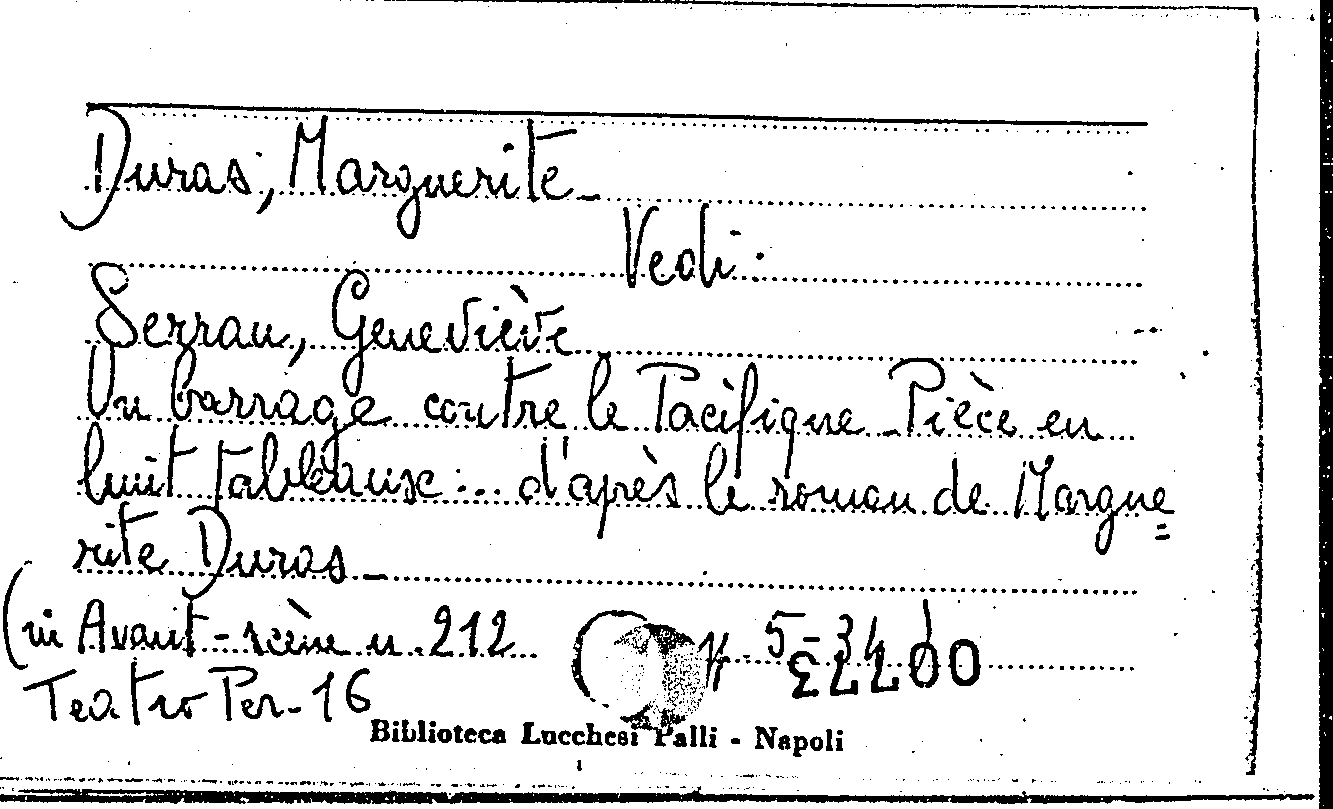 Duras, Marguerite_
Vedi:
Serrau, Geneviève
Un barrage contre le Pacifique_Pièce en
huit tableaux... d'après le roman de Margue=
rite Duras_
(in Avant-scène n.212
Teatro Per-16
Biblioteca Lucchesi Palli - Napoli